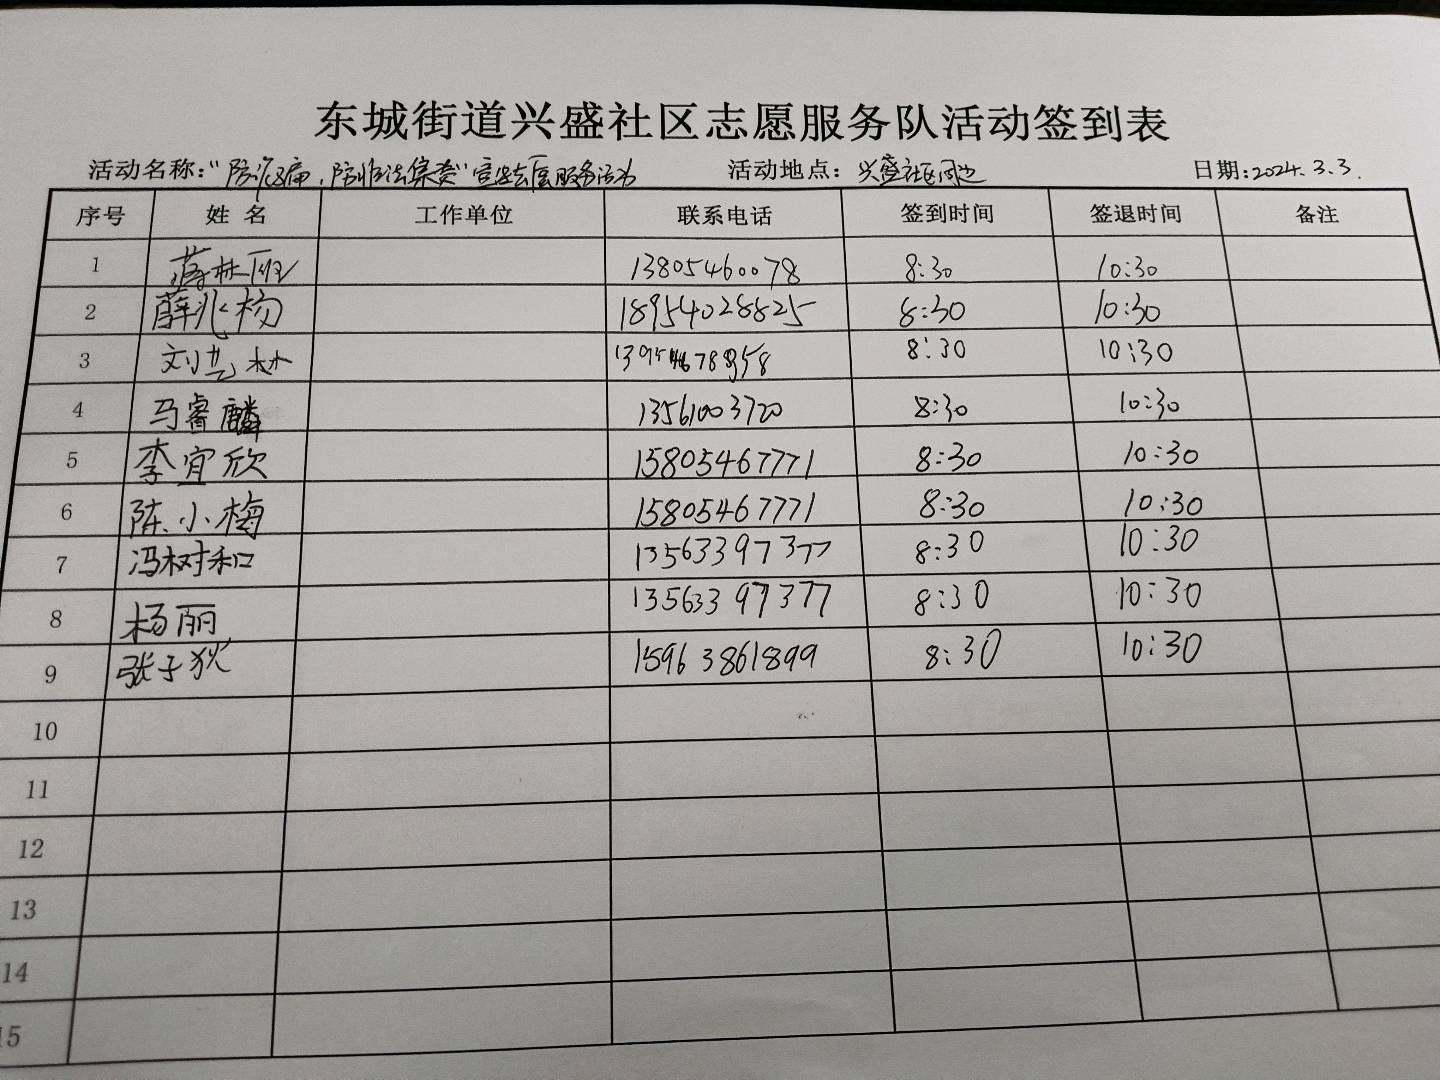 东城街道兴盛社区志愿服务队活动签到表
活动名称：“防诈骗，防非法集资”宣传志愿服务活动 活动地点：兴盛社区周边 日期：2024.3.3.
序号 姓名 工作单位 联系电话 签到时间 签退时间 备注
1 蒋林 13805460078 8:30 10:30
2 薛兆杨 18954028825 8:30 10:30
3 刘艺林 8:30 10:30
4 马睿麟 13561003720 8:30 10:30
5 李宜欣 15805467771 8:30 10:30
6 陈小梅 15805467771 8:30 10:30
7 冯树和 13563397377 8:30 10:30
8 杨丽 13563397377 8:30 10:30
9 张子狄 15963861899 8:30 10:30
10
11
12
13
14
15